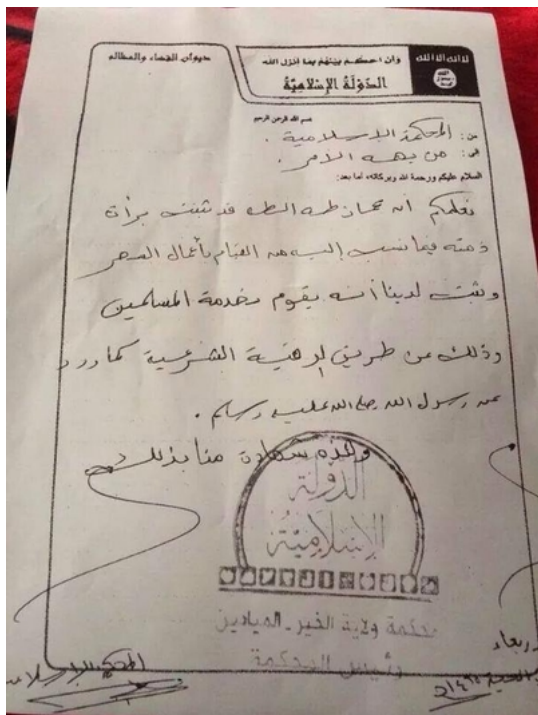 ديوان القضاء والمظالم
وان احكم بينهم بما انزل الله
الدَّوْلَةُ الإِسْلَامِيَّةُ
لا اله الا الله
الله
رسول
محمد
بسم الله الرحمن الرحيم
من: المحكمة الإسلامية.
إلى: من يهمه الأمر.
السلام عليكم ورحمة الله وبركاته، اما بعد:
نعلمكم أنه طه قد ثبتت برأة
ذمته فيما نسب إليه من القيام بأعمال السحر
وثبت لدينا أنه يقوم بخدمة المسلمين
وذلك عن طريق الرقية الشرعية كما ورد
عن رسول الله صلى الله عليه وسلم.
وهذه شهادة منا بذلك
الدولة
الإسلامية
محكمة ولاية الخير - الميادين
رئيس المحكمة